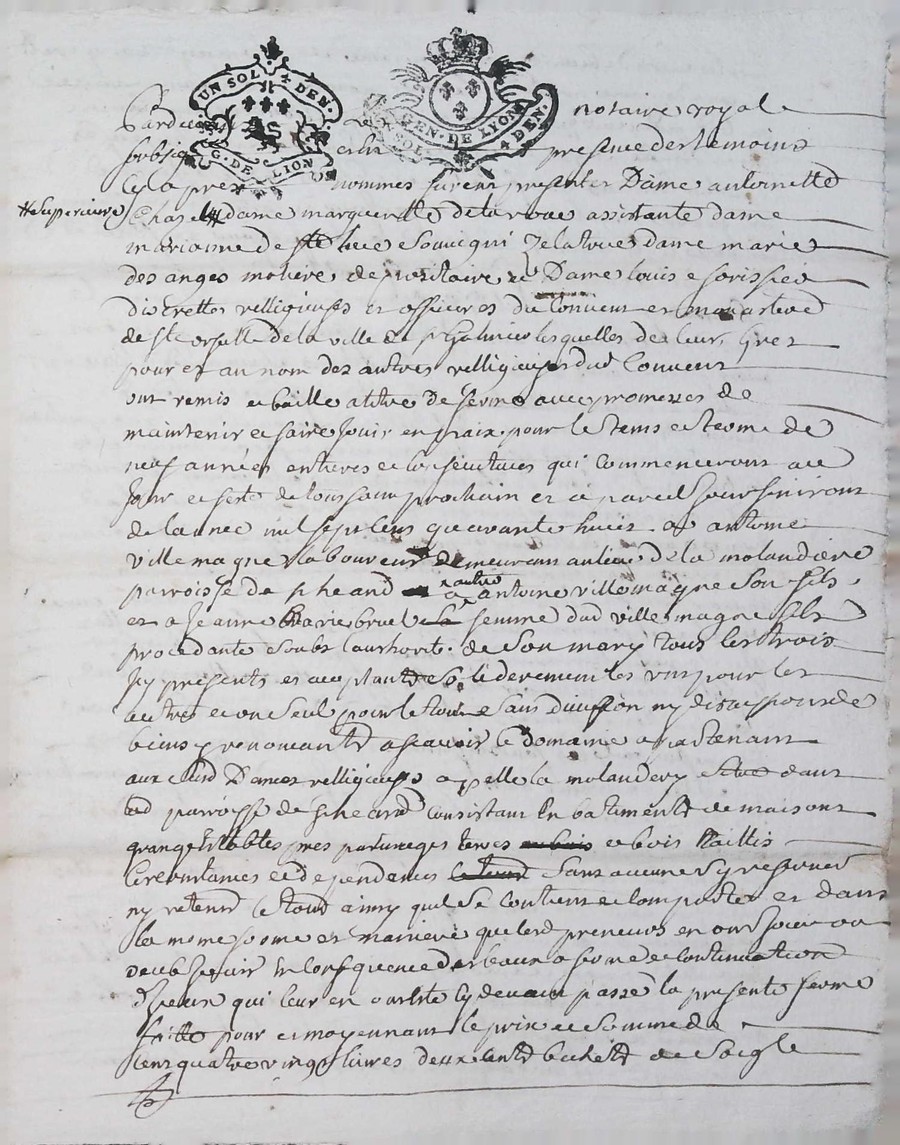 UN SOL 4 DEN.
G. DE LION
GEN. DE LYON
SOL 4 DEN.
Pardevant notaire royal
soubsigné presence des temoins
cy apres nommes furent presentes Dame antoinette
#superieure
Chazel # dame margueritte delaroue assistante dame
marianne de
des anges depositaire et Dame louise
discrettes relligieuses et officieres du Couvent et monastere
de ste orsulle de la ville de st Galmier lesquelles de leur gres
pour et au nom des autres relligieuses dud Couvent
ont remis et baille a titre de ferme avec promesses de
maintenir et faire jouir en paix pour le tems et terme de
neuf années entieres et consecutives qui commenceront au
jour et feste de toussaint prochain et a pareil jour finiront
de lannee mil sept cens quarante huit a antoine
villemagne laboureur demeurant au lieu de la molandiere
paroisse de st heand a autre antoine villemagne son fils
et a Jeanne Marie bruel femme dud villemagne fils
procedante soubs lauthorité de son mary tous les trois
jcy presents et acceptants solidairement les uns pour les
autres et un seul pour le tout sans division ny discussion de
biens y renonceants a scavoir le domaine apartenant
aux susd Dames relligieuses apellé la molandery situé dans
lad paroisse de st heand consistant en batiments de maisons
granges estables pres pasturages terres et bois taillis
circonstances et dependances sans aucune sy reserver
ny retenir le tout ainsy quil se contient et comporte et dans
la meme forme et maniere que les preneurs en ont joui ou
deub jouir en consequence des baux a ferme et continuation
diceux qui leur en ont été cy devant passé la presente ferme
faitte pour et moyennant le prix et somme de
cent quatre vingt livres deux cents bichets de seigle